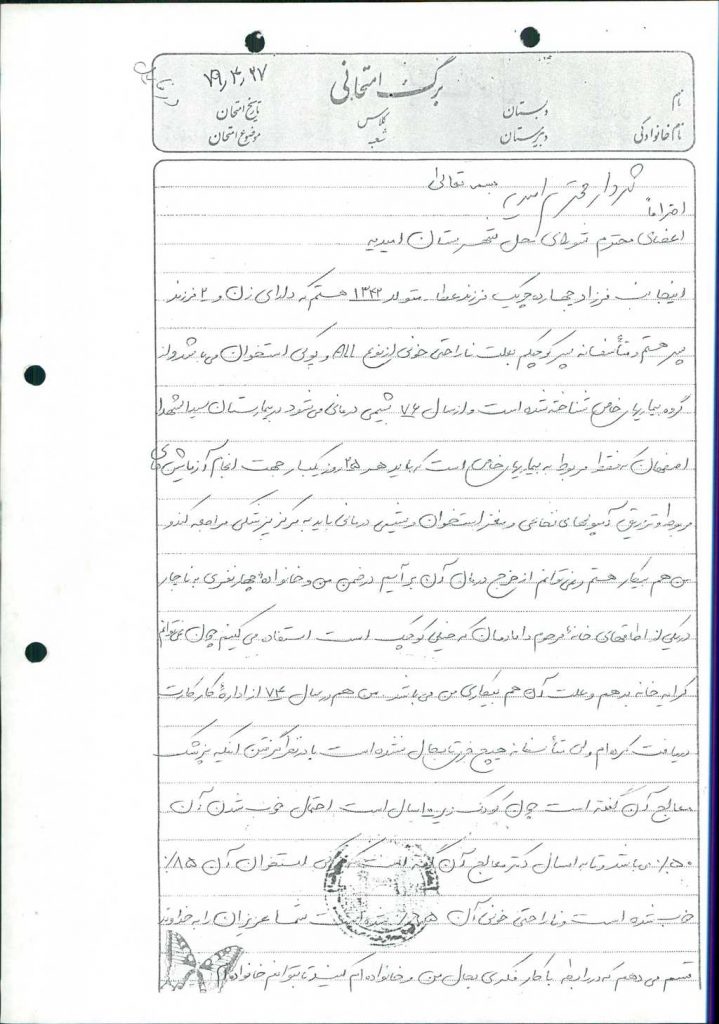 ۷۹٫۴٫۲۷
برگ امتحانی
نام
دبستان
کلاس
تاریخ امتحان
نام خانوادگی
دبیرستان
شعبه
موضوع امتحان
بسمه تعالی
شهردار محترم امیدیه
احتراماً
اعضای محترم شورای محل شهرستان امیدیه
اینجانب فرزاد چهارده چریک فرزند متولد ۱۳۴۲ هستم که دارای زن و ۲ فرزند
پسر هستم و متأسفانه پسر کوچکم بعلت ناراحتی خونی از نوع ALL و پوکی استخوان می باشد و از
گروه بیماریهای خاص شناخته شده است و از سال ۷۶ شیمی درمانی می شود در بیمارستان سیدالشهدا
اصفهان که فقط مربوط به بیماریهای خاص است که باید هر ۲۵ روز یکبار جهت انجام آزمایش های
مربوط و تزریق آمپولهای نخاعی و مغز استخوان و شیمی درمانی باید به مرکز پزشکی مراجعه کند و
من هم بیکار هستم و نمی توانم از خرج درمان آن برآیم در ضمن من و خانواده چهار نفری به ناچار
در یکی از اطاقهای خانۀ مرحوم دامادمان که خیلی کوچک است استفاده می کنیم چون نمی توانم
کرایه خانه بدهم و علت آن هم بیکاری من می باشد. من هم در سال ۷۴ از ادارۀ کار کارت
دریافت کرده ام ولی متأسفانه هیچ فرقی بحال نشده است با در نظر گرفتن اینکه پزشک
معالج آن گفته است چون کودک زیر ۱۰ سال است احتمال خوب شدن آن
۵۰٪ می باشد و تا به امسال دکتر معالج آن گفته است که استخوان آن ۸۵٪
خوب شده است و ناراحتی خونی آن شده است شما عزیزان را به خداوند
قسم می دهم که در رابطه با کار فکری بحال من و خانواده ام کنید تا بتوانم خانواده ام